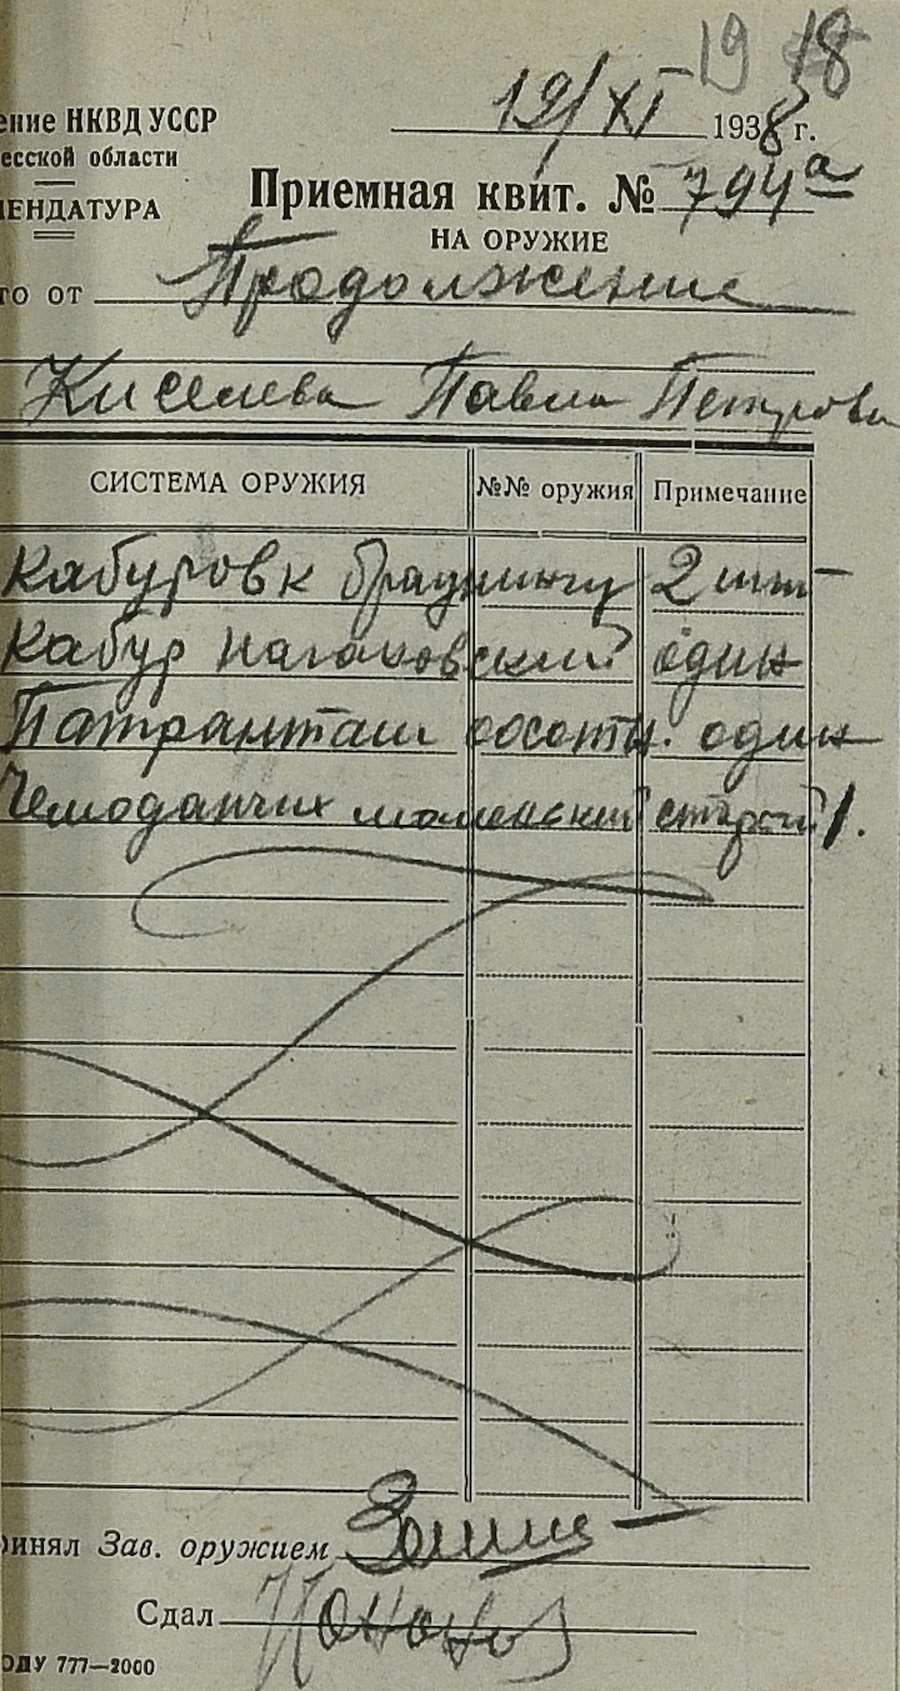 19 18
ение НКВД УССР
есской области
ЕНДАТУРА
19/XI 1938 г.
Приемная квит. № 794а
НА ОРУЖИЕ
то от Продолжение
Киселева Павла Петрови
СИСТЕМА ОРУЖИЯ №№ оружия Примечание
Кабуров к браунингу 2 шт
Кабур нагановский один
Патранташ охотн. один
Чемоданчик маленький старый 1.
ринял Зав. оружием
Сдал Кононов
ОДУ 777—2000